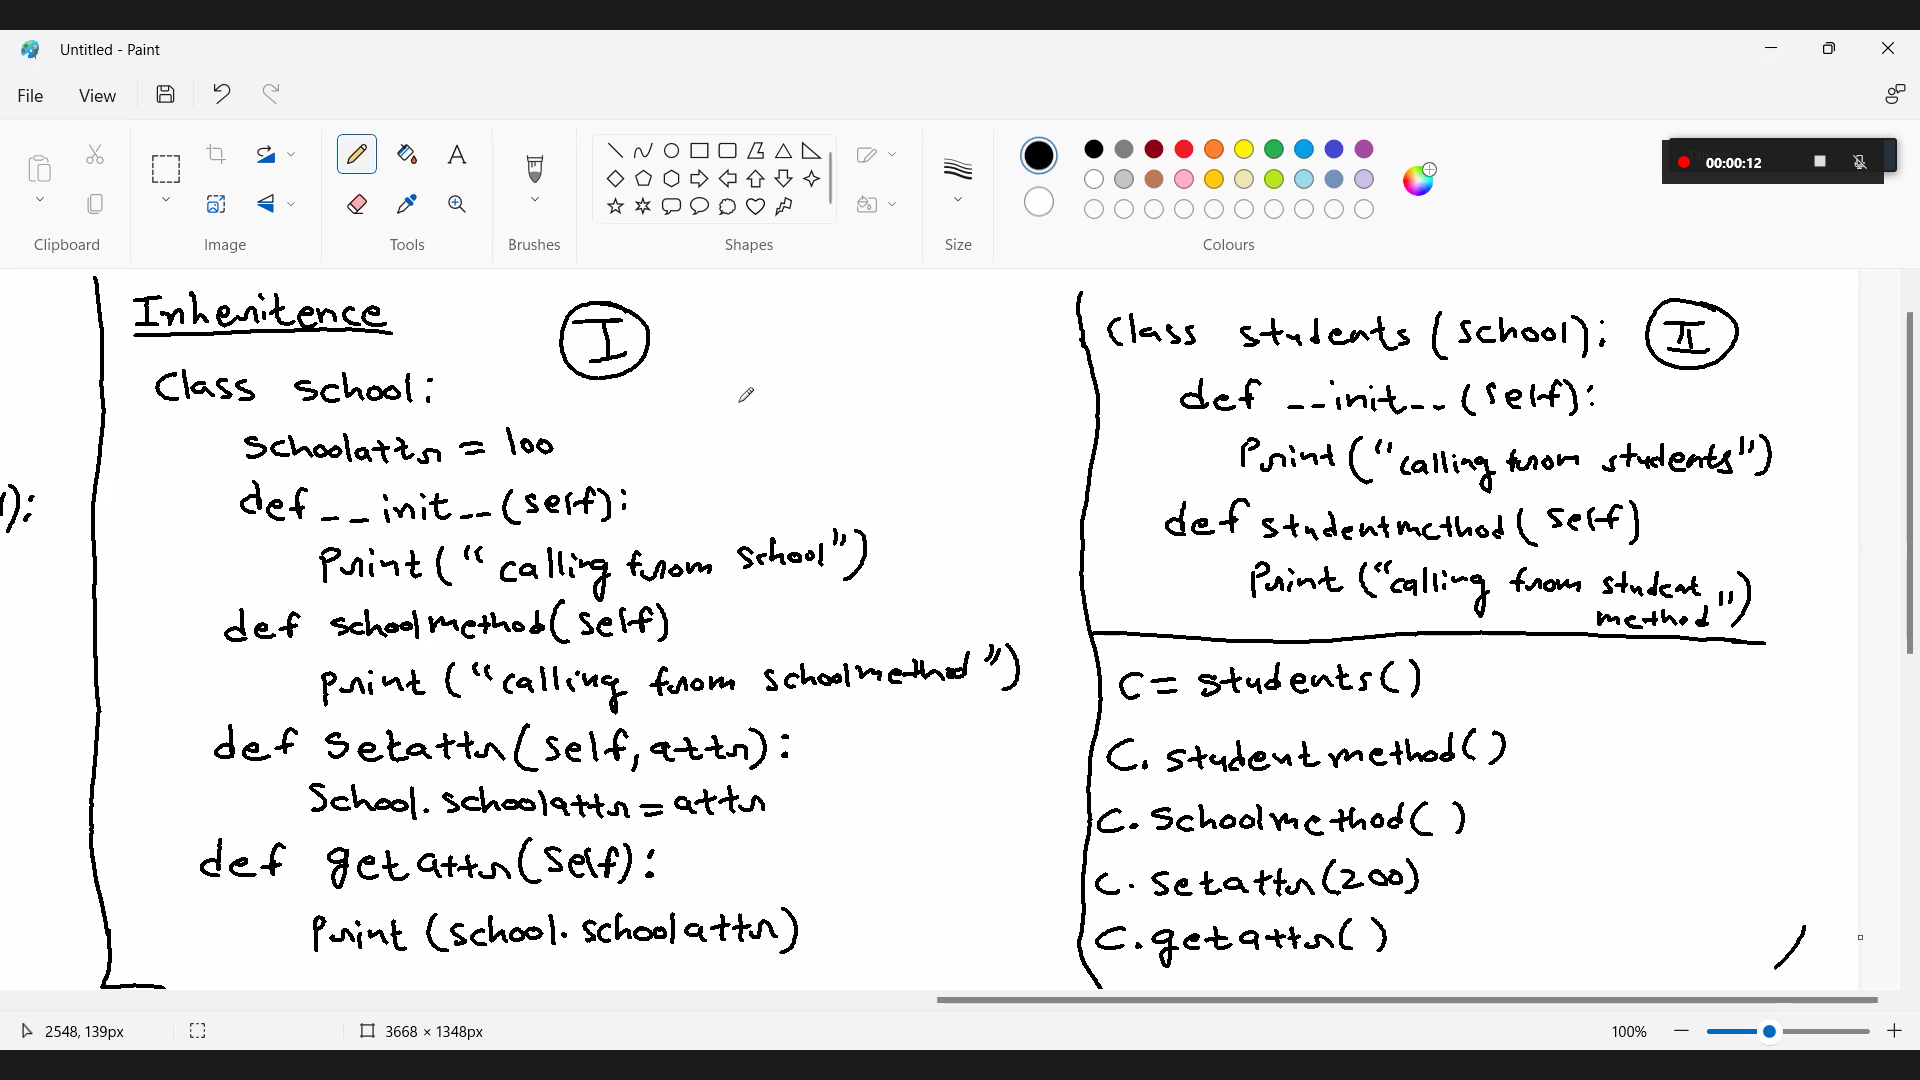 Untitled - Paint
File View
00:00:12
Clipboard Image Tools Brushes Shapes Size Colours
Inheritence
I
Class school:
schoolattr = 100
def __init__(self):
print("calling from school")
def schoolmethod(self)
print("calling from schoolmethod")
def setattr(self, attr):
School.schoolattr = attr
def getattr(self):
print(school.schoolattr)
):
Class students(school):
II
def __init__(self):
print("calling from students")
def studentmethod(self)
print("calling from student
method")
C = students()
C.studentmethod()
C.schoolmethod()
C.setattr(200)
C.getattr()
2548, 139px
3668 × 1348px
100%